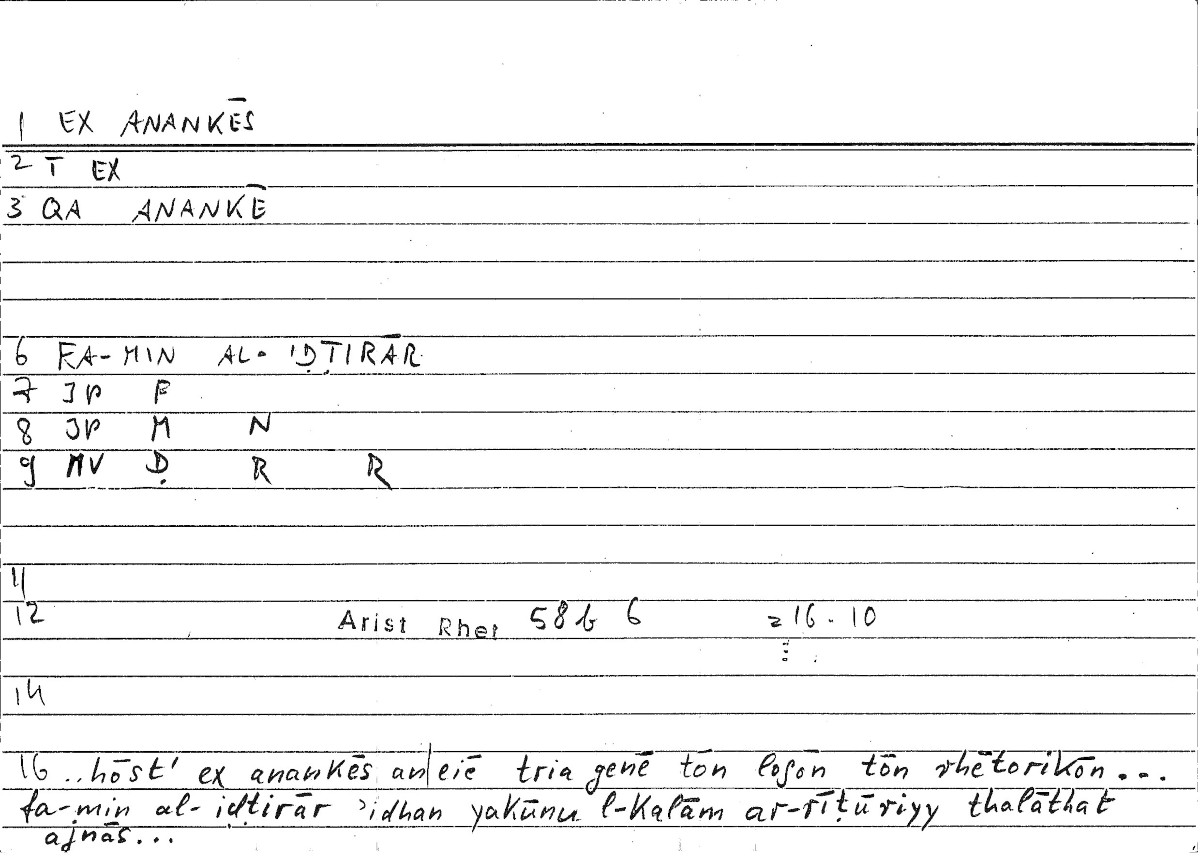 1 EX ANANKĒS
2 T EX
3 QA ANANKĒ
6 FA-MIN AL-'IḌṬIRĀR
7 JP F
8 JP M N
9 MV Ḍ R R
11
12 Arist Rhet 58b 6 = 16.10
14
16 ..hōst' ex anankēs an eiē tria genē tōn logōn tōn rhētorikōn...
fa-min al-iḍṭirār 'idhan yakūnu l-kalām ar-rīṭūriyy thalāthat
ajnās...